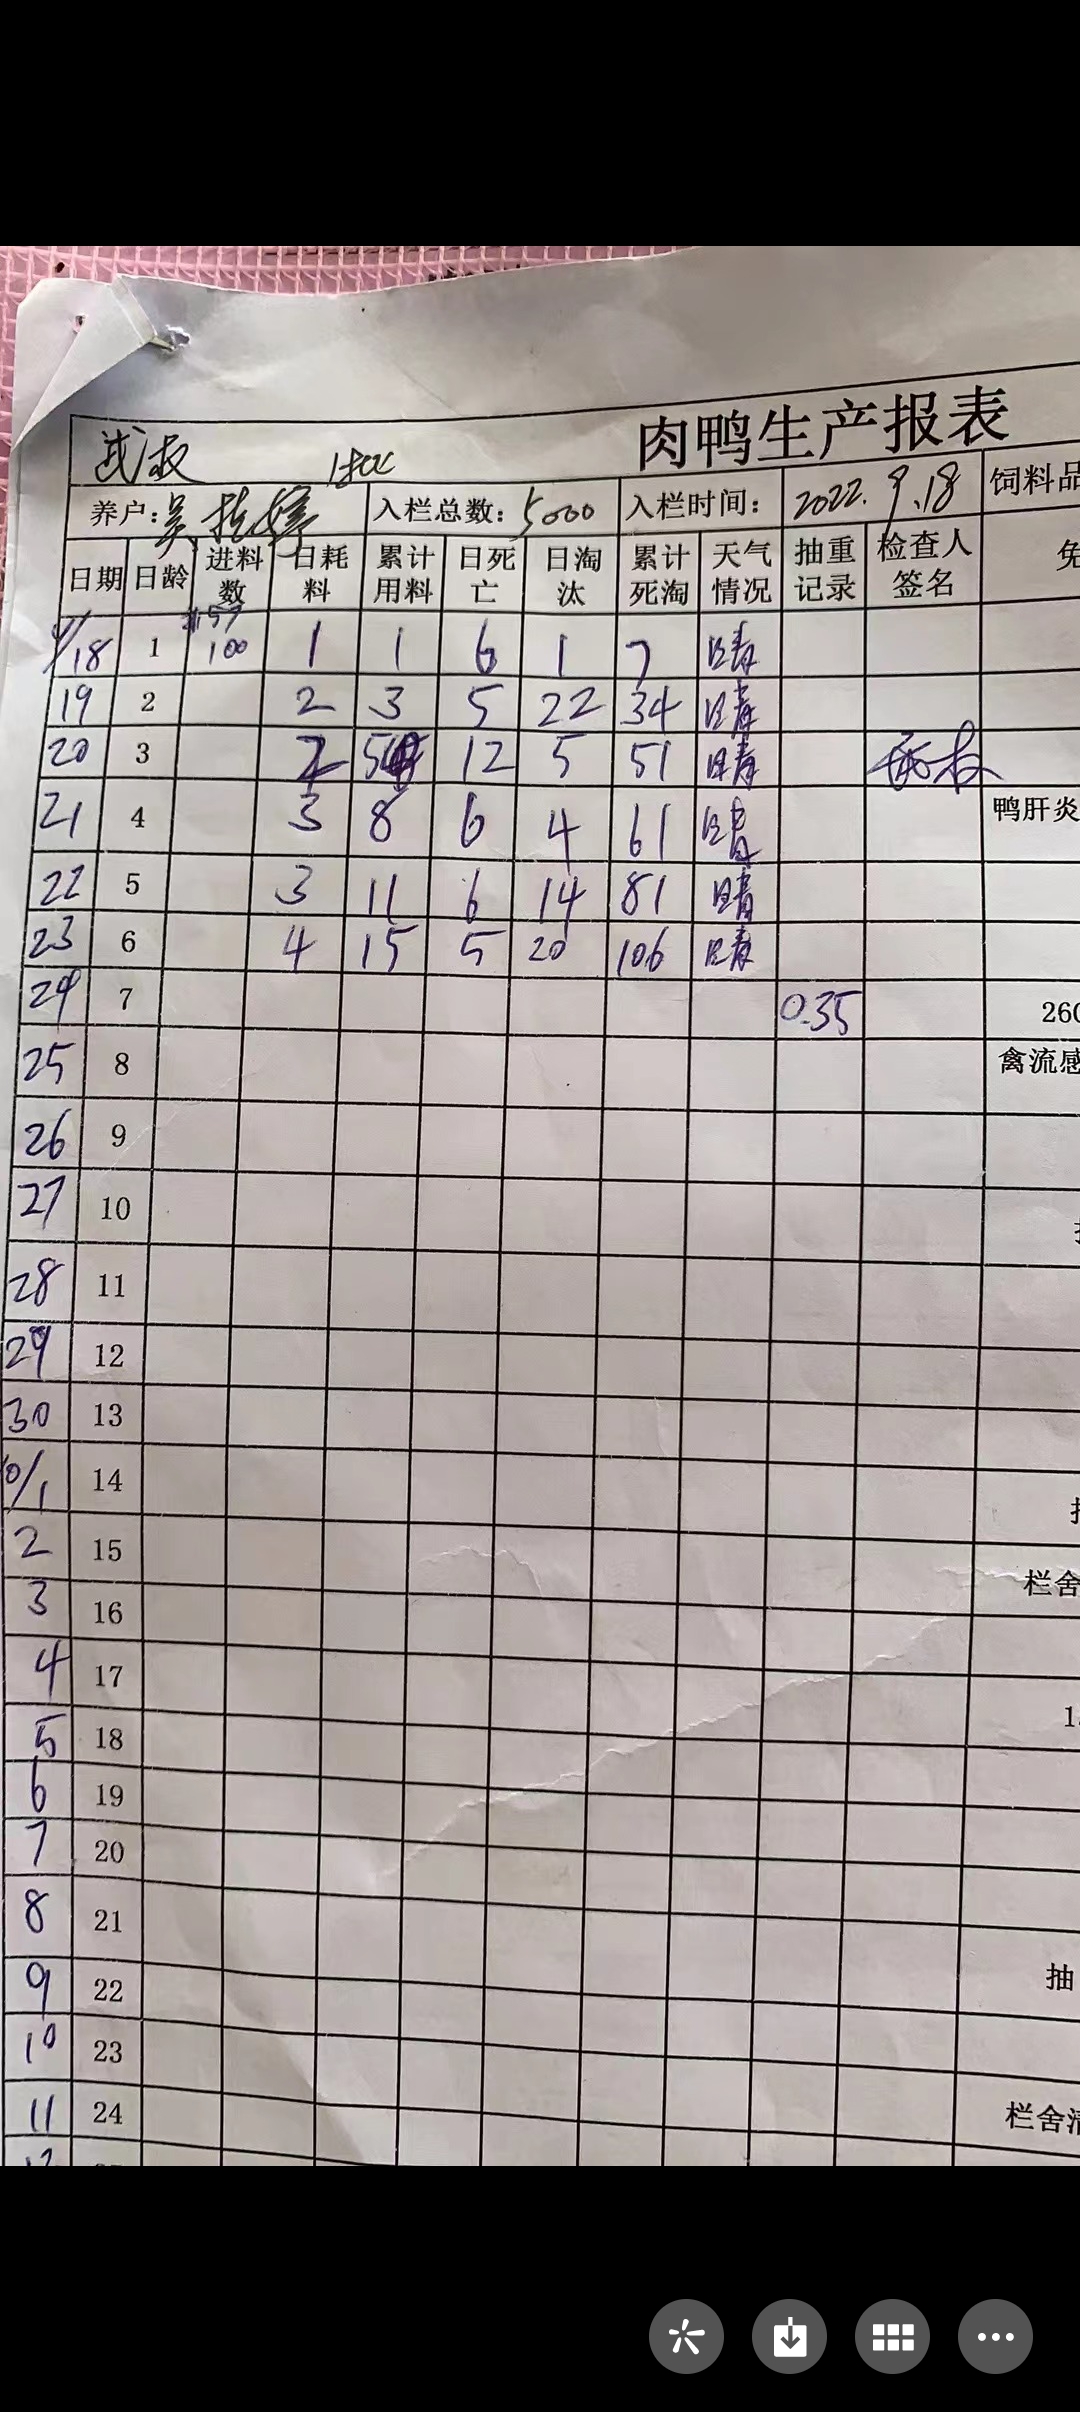 肉鸭生产报表
养户:吴 入栏总数:5000 入栏时间: 2022.9.18 饲料品
日期 日龄 进料数 日耗料 累计用料 日死亡 日淘汰 累计死淘 天气情况 抽重记录 检查人签名 免
9/18 1 100 1 1 6 1 7 晴
19 2 2 3 5 22 34 晴
20 3 2 5 12 5 51 晴
21 4 3 8 6 4 61 晴 鸭肝炎
22 5 3 11 6 14 81 晴
23 6 4 15 5 20 106 晴
24 7 0.35 260
25 8 禽流感
26 9
27 10
28 11
29 12
30 13
10/1 14
2 15 栏舍
3 16
4 17
5 18
6 19
7 20
8 21
9 22 抽
10 23
11 24 栏舍清
12